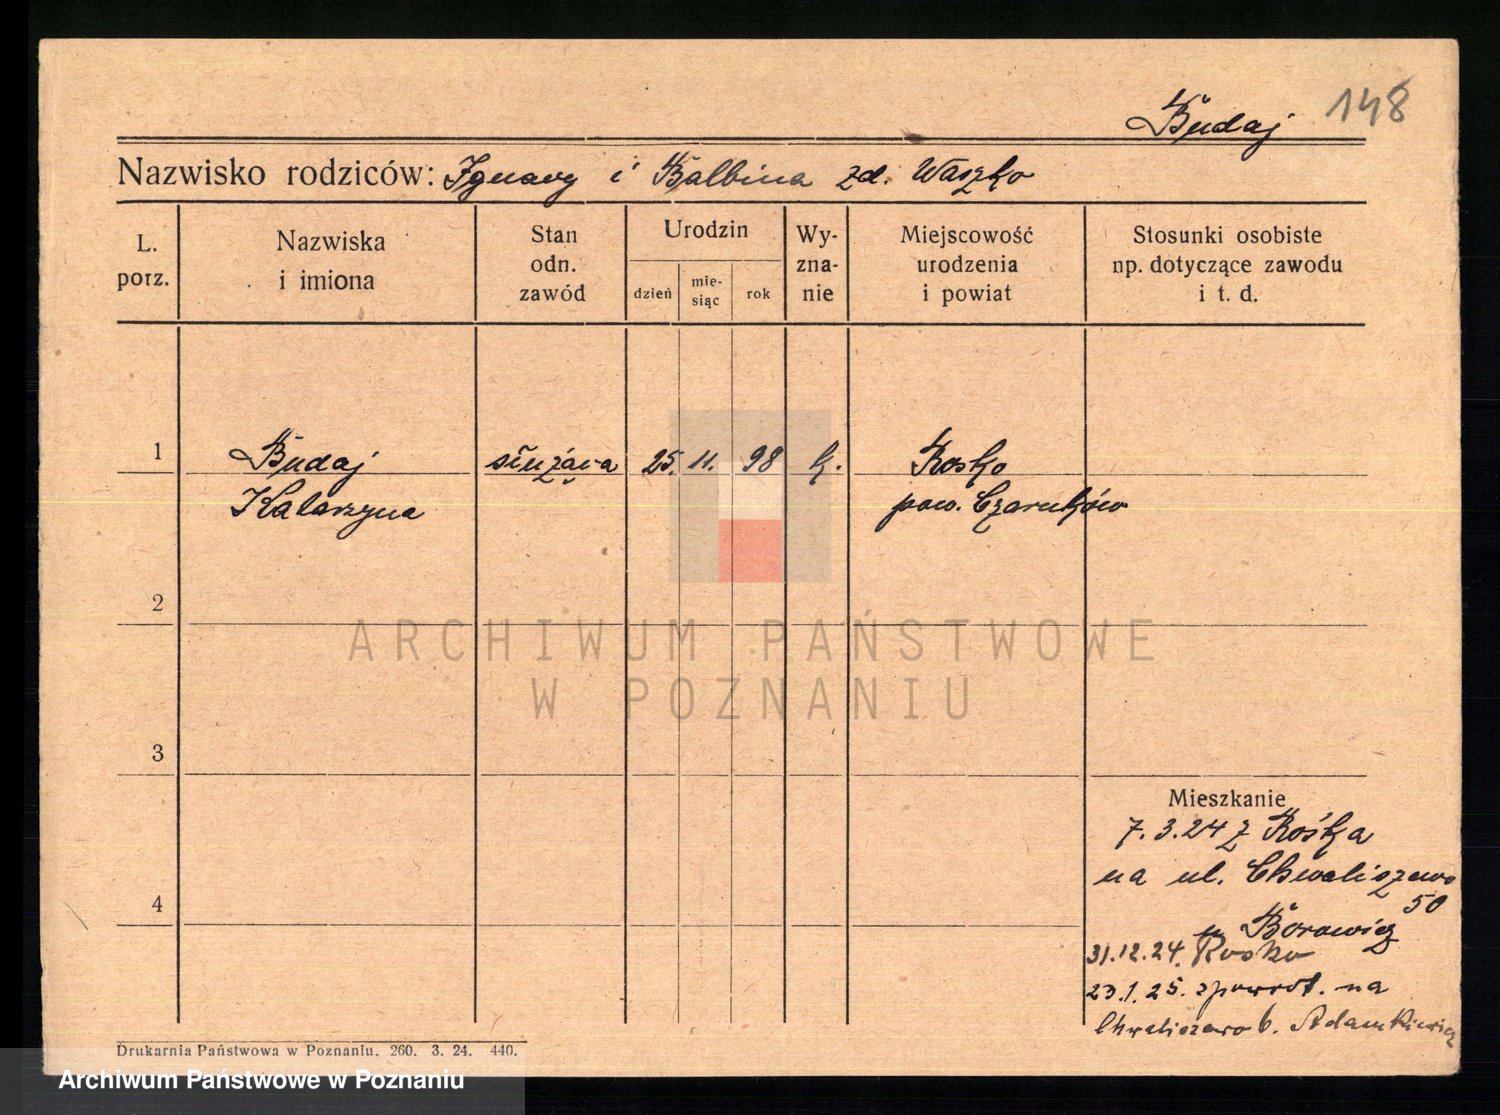 148
Budaj
Nazwisko rodziców: Ignacy i Balbina zd. Waszko
L. porz.
Nazwiska i imiona
Stan odn. zawód
Urodzin
dzień
mie-
siąc
rok
Wy-
zna-
nie
Miejscowość urodzenia i powiat
Stosunki osobiste np. dotyczące zawodu i t. d.
1 Budaj służąca 25. 11. 98 k. Rosko
Katarzyna pow. Czarnków
2
3
4
ARCHIWUM PAŃSTWOWE
W POZNANIU
Mieszkanie
7.3.24 z Rośka
na ul. Chwaliszewo
50
u Borowicz
31.12.24. Rosko
23.1.25. zpowrot. na
Chwaliszewo 6. Adamkiewicz
Drukarnia Państwowa w Poznaniu. 260. 3. 24. 440.
Archiwum Państwowe w Poznaniu